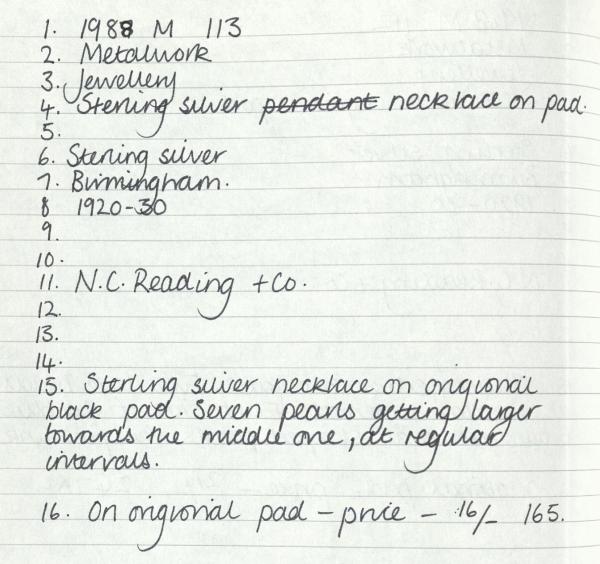 1. 1988 M 113
2. Metalwork
3. Jewellery
4. Sterling silver pendant necklace on pad.
5.
6. Sterling silver
7. Birmingham.
8 1920-30
9.
10.
11. N.C. Reading + Co.
12.
13.
14.
15. Sterling silver necklace on origional
black pad. Seven pearls getting larger
towards the middle one, at regular
intervals.
16. On origional pad - price - 16/- 165.